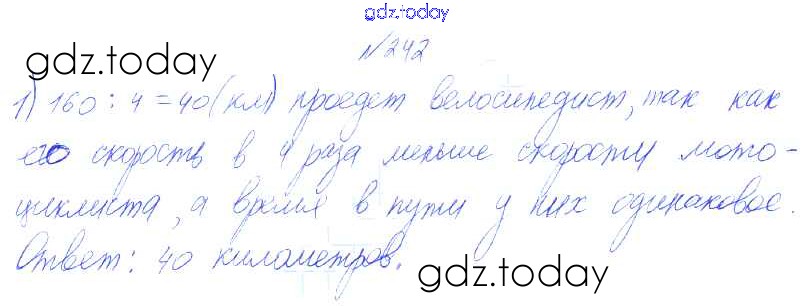 gdz.today
gdz.today
№242
1) 160 : 4 = 40 (км) проедет велосипедист, так как
его скорость в 4 раза меньше скорости мото-
циклиста, а время в пути у них одинаковое.
Ответ: 40 километров.
gdz.today